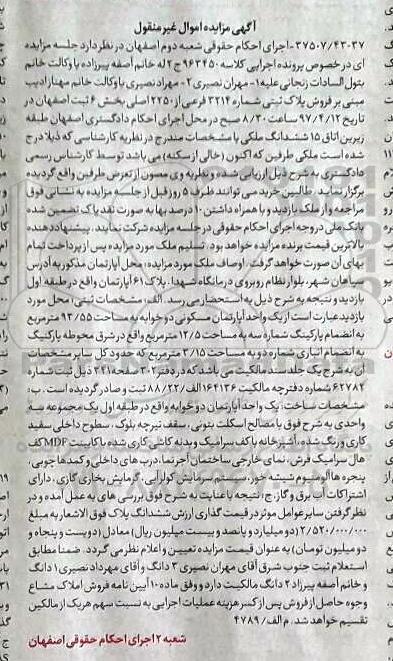 آگهی مزایده اموال غیر منقول
۳۷۵۰۷/۴۳-۳۷- اجرای احکام حقوقی شعبه دوم اصفهان در نظر دارد جلسه مزایده
ای در خصوص پرونده اجرایی کلاسه ۹۶۳۴۵۰ ج ۲ له خانم آصفه پیرزاد با وکالت خانم
بتول السادات زنجانی علیه ۱- مهران نصیری ۲- مهرداد نصیری با وکالت خانم مهناز ادیب
مبنی بر فروش پلاک ثبتی شماره ۳۲۱۴ فرعی از ۲۲۵۰ اصلی بخش ۶ ثبت اصفهان در
تاریخ ۹۷/۴/۱۲ ساعت ۸/۳۰ صبح در محل اجرای احکام دادگستری اصفهان طبقه
زیرین اتاق ۱۵ ششدانگ ملکی با مشخصات مندرج در نظریه کارشناسی که ذیلا درج
شده است ملکی طرفین که اکنون (خالی از سکنه) می باشد توسط کارشناس رسمی
دادگستری به شرح ذیل ارزیابی شده و نظریه وی مصون از تعرض طرفین واقع گردیده
برگزار نماید. طالبین خرید می توانند ظرف ۵ روز قبل از جلسه مزایده به نشانی فوق
مراجعه و از ملک بازدید و با همراه داشتن ۱۰ درصد بها به صورت نقد یا چک تضمین شده
بانک ملی در وجه اجرای احکام حقوقی در جلسه مزایده شرکت نمایند. پیشنهاد دهنده
بالاترین قیمت برنده مزایده خواهد بود. تسلیم ملک مورد مزایده پس از پرداخت تمام
بهای آن صورت خواهد گرفت. اوصاف ملک مورد مزایده: محل آپارتمان مذکور به آدرس
سپاهان شهر، بلوار نظام روبروی درمانگاه شهدا، پلاک ۶۱ آپارتمان واقع در طبقه اول
بازدید و نتیجه به شرح ذیل به استحضار می رسد. الف: مشخصات ثبتی: محل مورد
بازدید عبارت است از یک واحد آپارتمان مسکونی دو خوابه به مساحت ۹۳/۵۵ مترمربع
به انضمام پارکینگ شماره سه به مساحت ۱۲/۵ مترمربع واقع در شرق محوطه پارکینگ
به انضمام انباری شماره دو به مساحت ۳/۱۵ مترمربع که حدود کل سایر مشخصات
آن به شرح یک جلد سند مالکیت می باشد که در دفتر ۳۰۲ صفحه ۲۴۱ ذیل ثبت شماره
۶۲۷۸۲ شماره دفترچه مالکیت ۱۶۴۱۳۶ الف/۸۸/۲۲ ثبت و صادر گردیده است. ب:
مشخصات ساخت: یک واحد آپارتمان دو خوابه واقع در طبقه اول یک مجموعه سه
واحدی به شرح فوق با مصالح اسکلت بتونی، سقف تیرچه بلوک، سطوح داخلی سفید
کاری و رنگ شده، آشپزخانه با کف سرامیک و بدنه کاشی کاری شده با کابینت MDF کف
هال سرامیک فرش، نمای خارجی ساختمان آجرنما، درب های داخلی و کمدها چوبی،
پنجره ها آلومینیوم شیشه خور، سیستم سرمایش کولر آبی، گرمایش بخاری گازی، دارای
اشتراکات آب برق و گاز، ج: نتیجه با عنایت به شرح فوق بررسی های به عمل آمده و در
نظر گرفتن سایر عوامل موثر در قیمت گذاری ارزش ششدانگ پلاک فوق الاشعار به مبلغ
۲/۵۲۰/۰۰۰/۰۰۰ (دو میلیارد و پانصد و بیست میلیون ریال) معادل (دویست و پنجاه و
دو میلیون تومان) به عنوان قیمت مزایده تعیین و اعلام نظر می گردد. ضمنا مطابق
استعلام ثبت جنوب شرق آقای مهران نصیری ۳ دانگ و آقای مهرداد نصیری ۱ دانگ
و خانم آصفه پیرزاد ۲ دانگ مالکیت دارد و وفق ماده ۱۰ آیین نامه فروش املاک مشاع
وجوه حاصل از فروش پس از کسر هزینه عملیات اجرایی به نسبت سهم هر یک از مالکین
تقسیم خواهد شد. م الف/۴۷۸۹
شعبه ۲ اجرای احکام حقوقی اصفهان